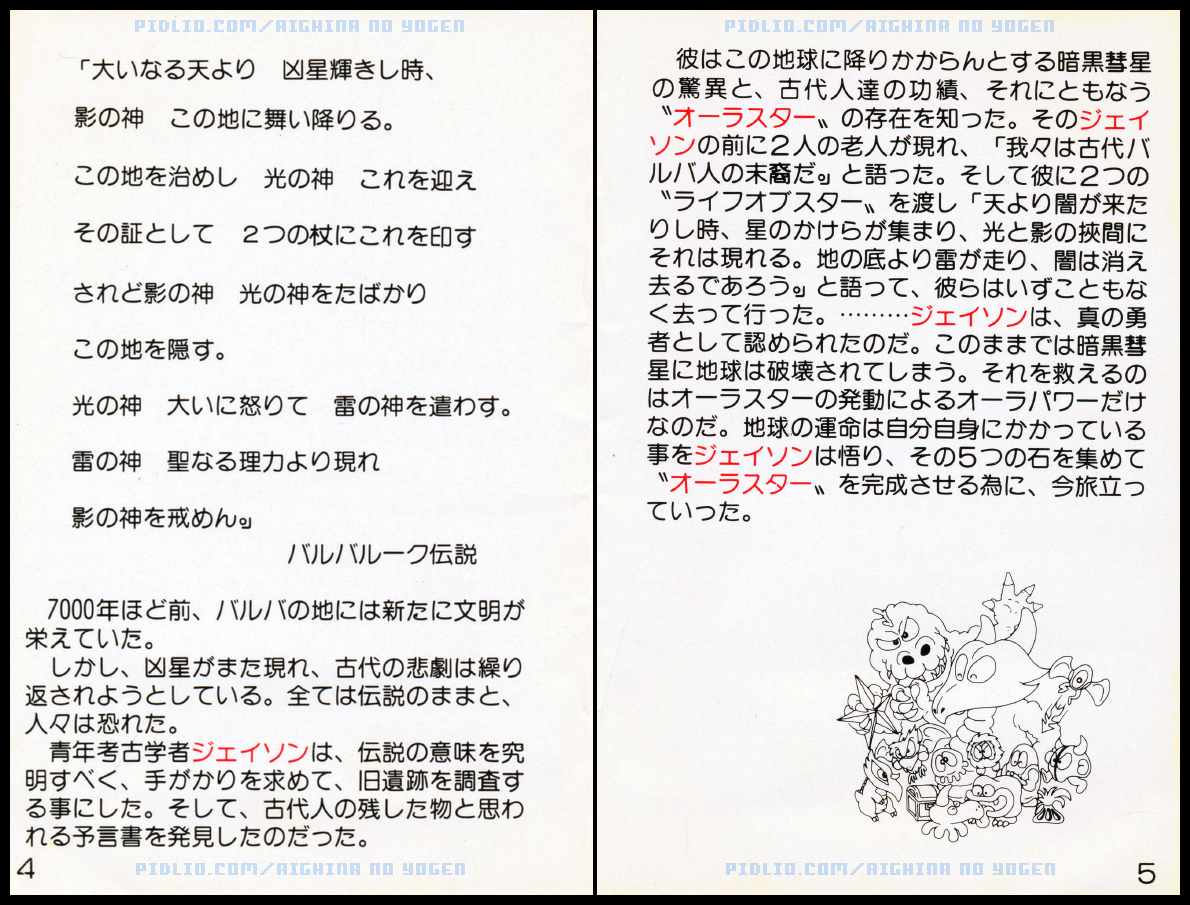 PIDLIO.COM/AIGHINA NO YOGEN
「大いなる天より　凶星輝きし時、
影の神　この地に舞い降りる。
この地を治めし　光の神　これを迎え
その証として　２つの杖にこれを印す
されど影の神　光の神をたばかり
この地を隠す。
光の神　大いに怒りて　雷の神を遣わす。
雷の神　聖なる理力より現れ
影の神を戒めん。」
バルバルーク伝説
7000年ほど前、バルバの地には新たに文明が
栄えていた。
しかし、凶星がまた現れ、古代の悲劇は繰り
返されようとしている。全ては伝説のままと、
人々は恐れた。
青年考古学者ジェイソンは、伝説の意味を究
明すべく、手がかりを求めて、旧遺跡を調査す
る事にした。そして、古代人の残した物と思わ
れる予言書を発見したのだった。
4
PIDLIO.COM/AIGHINA NO YOGEN
PIDLIO.COM/AIGHINA NO YOGEN
彼はこの地球に降りかからんとする暗黒彗星
の驚異と、古代人達の功績、それにともなう
〝オーラスター〟の存在を知った。そのジェイ
ソンの前に２人の老人が現れ、「我々は古代バ
ルバ人の末裔だ。」と語った。そして彼に２つの
〝ライフオブスター〟を渡し「天より闇が来た
りし時、星のかけらが集まり、光と影の挾間に
それは現れる。地の底より雷が走り、闇は消え
去るであろう。」と語って、彼らはいずこともな
く去って行った。………ジェイソンは、真の勇
者として認められたのだ。このままでは暗黒彗
星に地球は破壊されてしまう。それを救えるの
はオーラスターの発動によるオーラパワーだけ
なのだ。地球の運命は自分自身にかかっている
事をジェイソンは悟り、その５つの石を集めて
〝オーラスター〟を完成させる為に、今旅立っ
ていった。
PIDLIO.COM/AIGHINA NO YOGEN
5